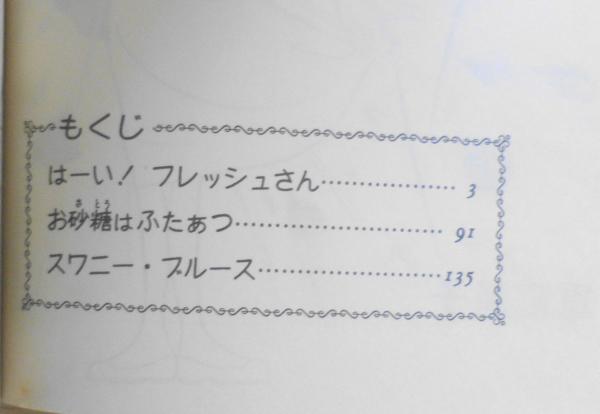 もくじ
はーい！フレッシュさん………………3
お砂糖はふたぁつ………………………91
スワニー・ブルース……………………135